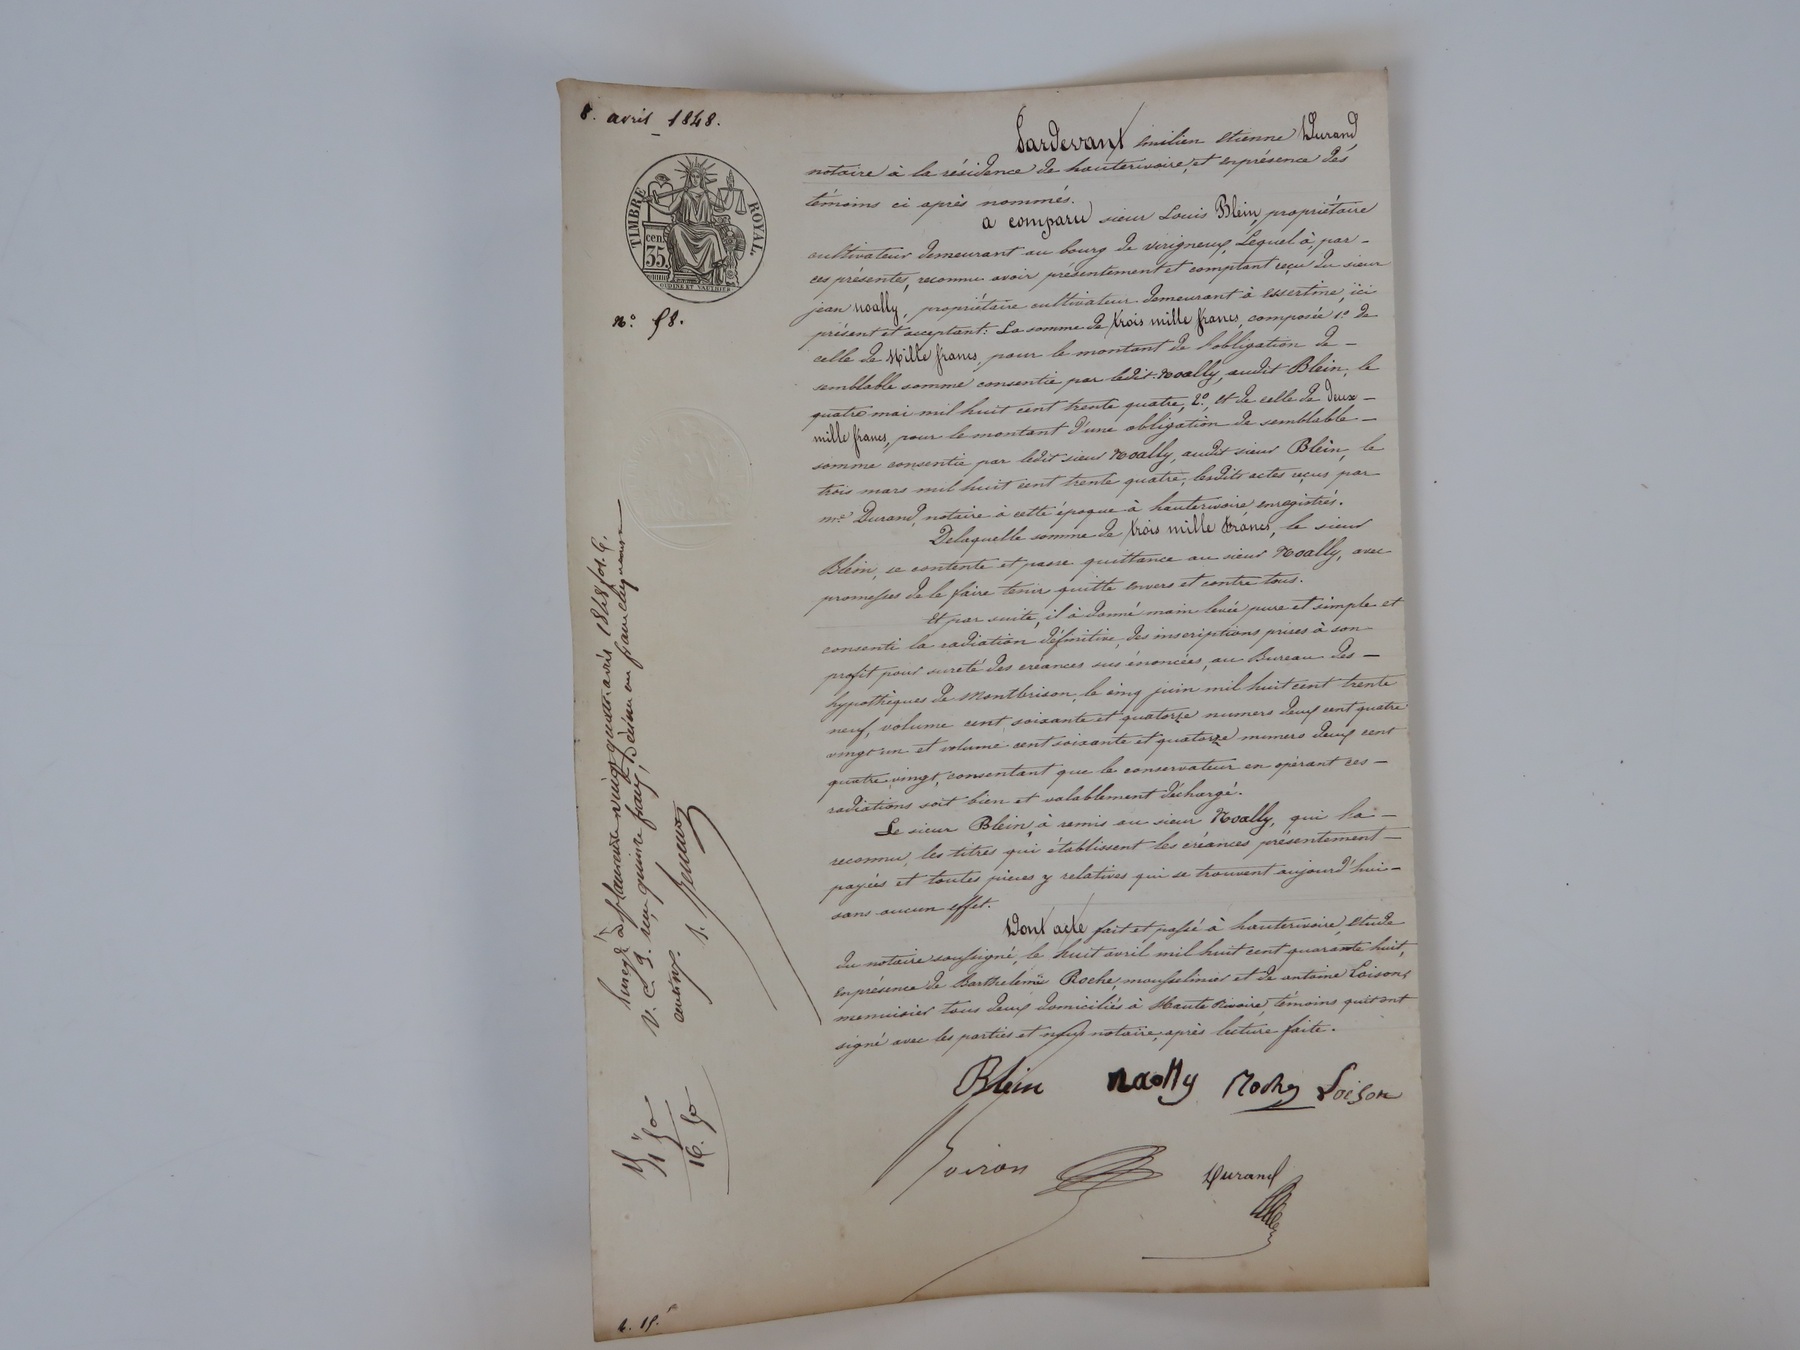 8. avril 1848.
TIMBRE ROYAL.
cen. 35.
N.o 58.
Pardevant Emilien Etienne Durand
notaire à la résidence de hauterivoire, et en présence des
témoins ci après nommés.
a comparu sieur Louis Blein, propriétaire
cultivateur demeurant au bourg de virigneux, Lequel à, par-
ces présentes, reconnu avoir présentement et comptant reçu du sieur
jean noally, propriétaire cultivateur demeurant à essertine, ici
présent et acceptant: La somme de trois mille francs, composée 1o de
celle de Mille francs, pour le montant de l'obligation de-
semblable somme consentie par ledit Noally, audit Blein, le
quatre mai mil huit cent trente quatre, 2o, et de celle de deux-
mille francs, pour le montant d'une obligation de semblable-
somme consentie par ledit sieur Noally, audit sieur Blein, le
trois mars mil huit cent trente quatre, lesdits actes reçus par
me Durand, notaire à cette époque à hauterivoire, enregistrés.
De laquelle somme de trois mille francs, le sieur
Blein, se contente et passe quittance au sieur Noally, avec
promesses de le faire tenir quitte envers et contre tous.
Et par suite, il à donné main levée pure et simple et
consenti la radiation définitive, des inscriptions prises à son
profit pour sureté des créances sus énoncées, au Bureau des-
hypothèques de Montbrison, le cinq juin mil huit cent trente
neuf, volume cent soixante et quatorze numero deux cent quatre
vingt un et volume cent soixante et quatorze numero deux cent
quatre vingt, consentant que le conservateur en opérant ces-
radiations soit bien et valablement déchargé.
Le sieur Blein, à remis au sieur Noally, qui l'a-
reconnu, les titres qui établissent les créances présentement-
payées et toutes pieces y relatives qui se trouvent aujourd'hui-
sans aucun effet.
Dont acte fait et passé à hauterivoire, étude
du notaire soussigné, le huit avril mil huit cent quarante huit,
en présence de Barthelemi Roche, mousselinier et de antoine Loison,
menuisier tous deux domiciliés à Haute Rivoire, témoins qui ont
signé avec les parties et nous notaire, après lecture faite.
Blein Naolly Roche Loison
Durand
vingt quatre avril 1848 fol.
V. C. reçu quinze francs, décime un franc cinquante
centimes.
15 "
1 50
16. 50